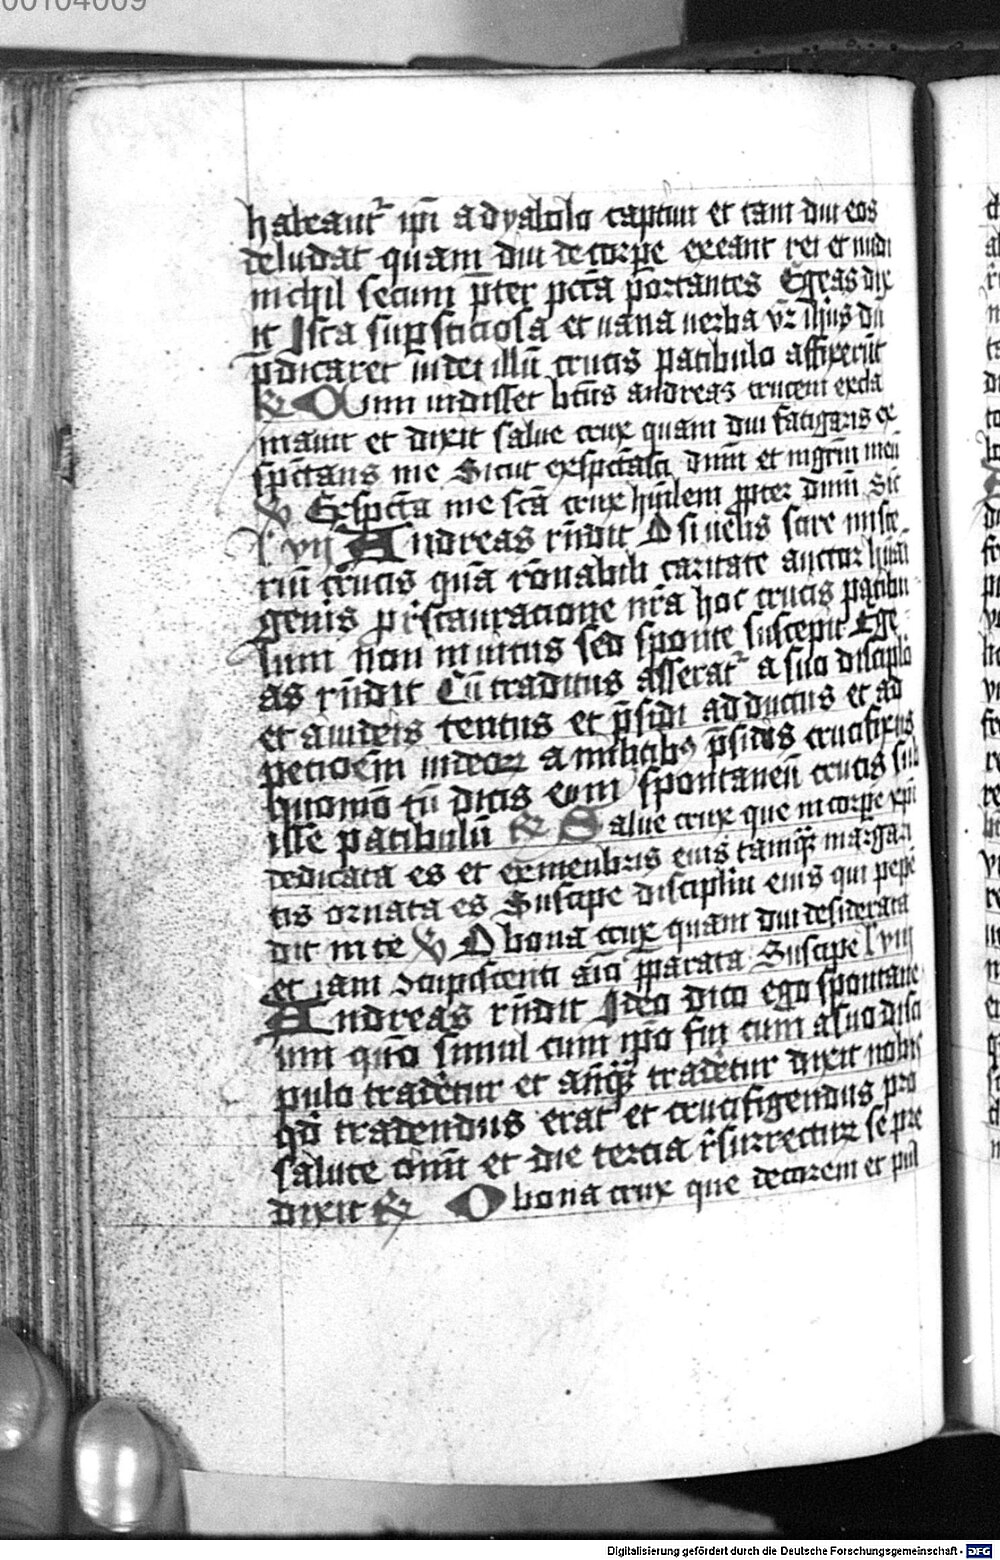 00104009
habeant᷑ ip̄i a dyabolo captiui et tam diu eos
deludat quam diu de corp̄e exeant rei et nudi
nichil secum p̄ter pctā portantes Egeas dix
it Ista sup̄sticiosa et uana uerba vr̄ ihūs dū
p̄dicaret iudei illū crucis patibulo affixerūt
R Cum uidisset bt̄us andreas crucem excla
mauit et dixit salue crux quam diu fatigaris ex
spectans me Sicut exspc̄tasti dnm̄ et mgrm̄ meū
V Exspc̄ta me sc̄a crux hūilem p̱pter dnm̄ Sic
l' vij Andreas rn̄dit O si uelis scire miste
riū crucis quā rōnabili caritate auctor hūai
generis p r̄stauracione nr̄a hoc crucis patibu
lum non inuitus sed sponte suscepit Ege
as rn̄dit Cū traditus asserat᷑ a suo discipło
et a iudeis tentus et p̄sidi adductus et ad
peticōem iudeoꝝ a militibꝫ p̄sidis crucifixus
huomō tū dicis eum spontaneū crucis sub
isse patibulū R Salue crux que in corpe xpi
dedicata es et ex membris eius tamqꝫ margari
tis ornata es Suscipe discipłm eius qui pepē
dit in te V O bona crux quam diu desiderata
et iam ɔcupiscenti aīo p̄parata Suscipe l' viij
Andreas rn̄dit Ideo dico ego spontane
um qm̄o simul cum ipō fui cum a suo disci
pulo traderetur et anq̄ꝫ traderetur dixit nobis
qd̄ tradendus erat et crucifigendus pro
salute oīm̄ et die tercia r̄surrectur se pre
dixit R O bona crux que decorem et pul
Digitalisierung gefördert durch die Deutsche Forschungsgemeinschaft - DFG